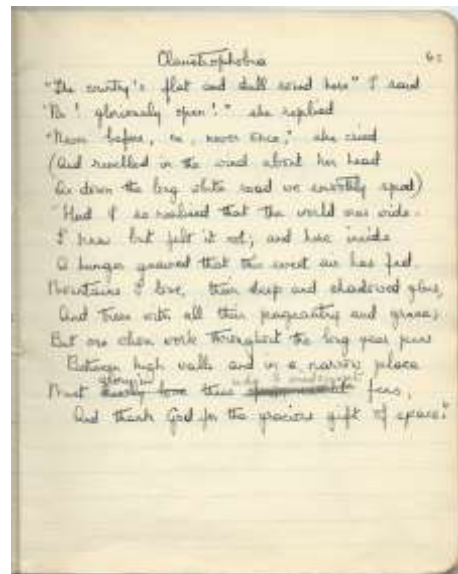 Claustrophobia 62
"The country's flat and dull round here" I said
"No! gloriously open!" she replied
"Never before, no, never once," she cried
(And revelled in the wind about her head
As down the long white road we smoothly sped)
"Had I so realised that the world was wide.
I knew but felt it not; and here inside
A hunger gnawed that this sweet air has fed.
Mountains I love, their deep and shadowed glens,
And trees with all their pageantry and grace;
But one whose work throughout the long year pens
Between high walls and in a narrow place
glory in wide
Must dearly love these fens,
And thank God for the gracious gift of space."